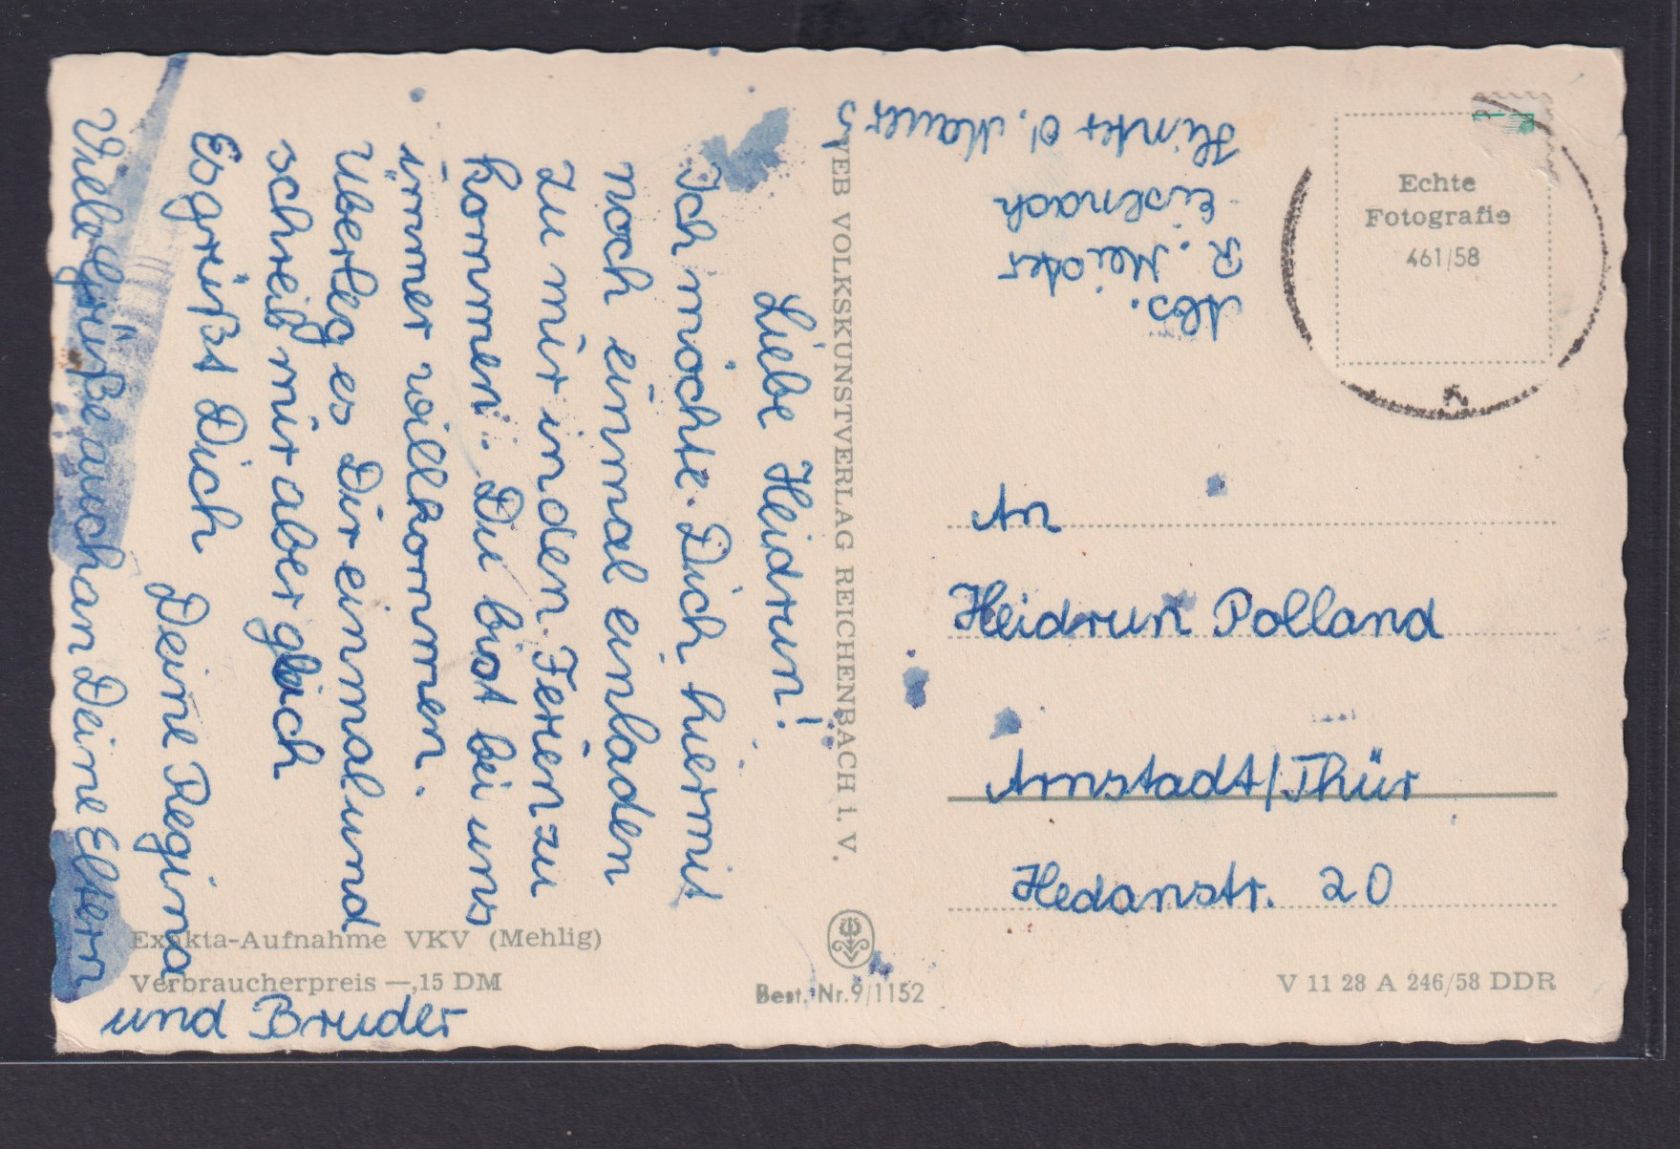 Liebe Heidrun!
Ich möchte Dich hiermit
noch einmal einladen
zu mir in den Ferien zu
kommen. Du bist bei uns
immer willkommen.
Überleg es Dir einmal und
schreib mir aber gleich
Es grüßt Dich
Deine Regina
Viele Grüße auch an Deine Eltern
und Bruder
Exakta-Aufnahme VKV (Mehlig)
Verbraucherpreis —,15 DM
VEB VOLKSKUNSTVERLAG REICHENBACH i. V.
Best. Nr. 9/1152
Abs.
R. Meider
Eisenach
Hintr d. Mauer 5
Echte
Fotografie
461/58
An
Heidrun Polland
Arnstadt/Thür
Hedanstr. 20
V 11 28 A 246/58 DDR